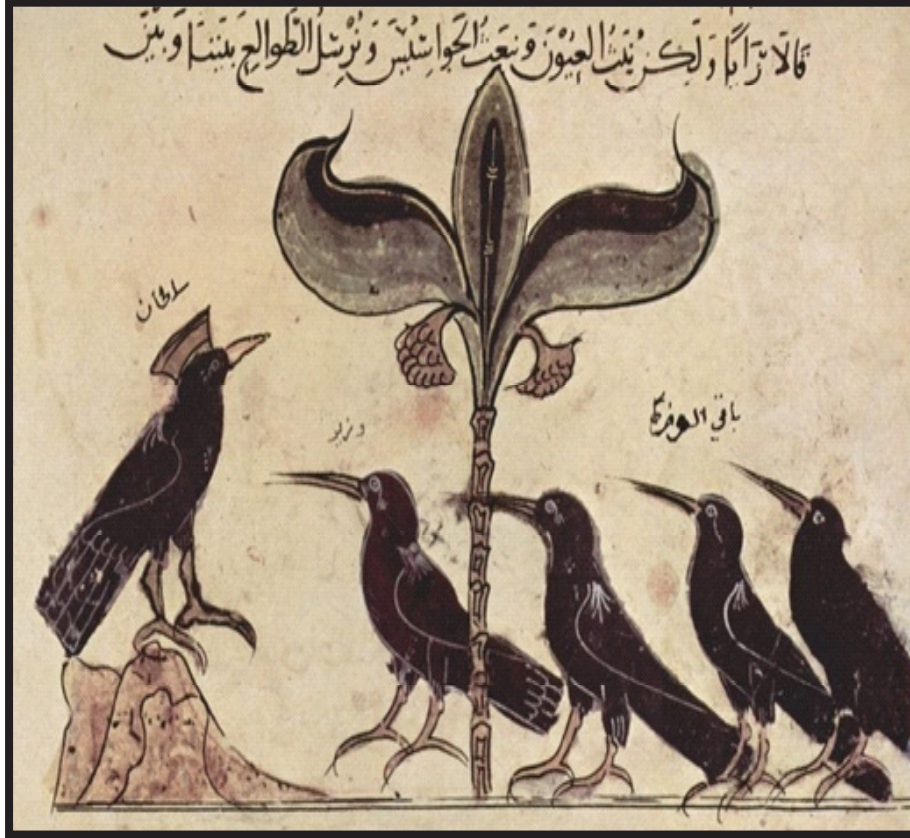 قالا رَايًا وَلكن نَبُثُ العِيُونَ وَنبعَثُ الجَواسِيْسَ وَنُرْسِلُ الطَّوالعَ بيننَا وَبَيْنَ
سلطان
باقي الوزرا
وزير